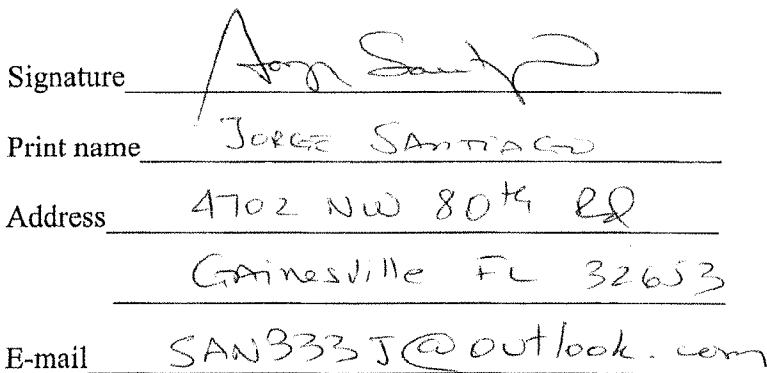 Signature
Print name JORGE SANTIAGO
Address 4702 NW 80th Rd
Gainesville FL 32653
E-mail SAN333J@outlook.com